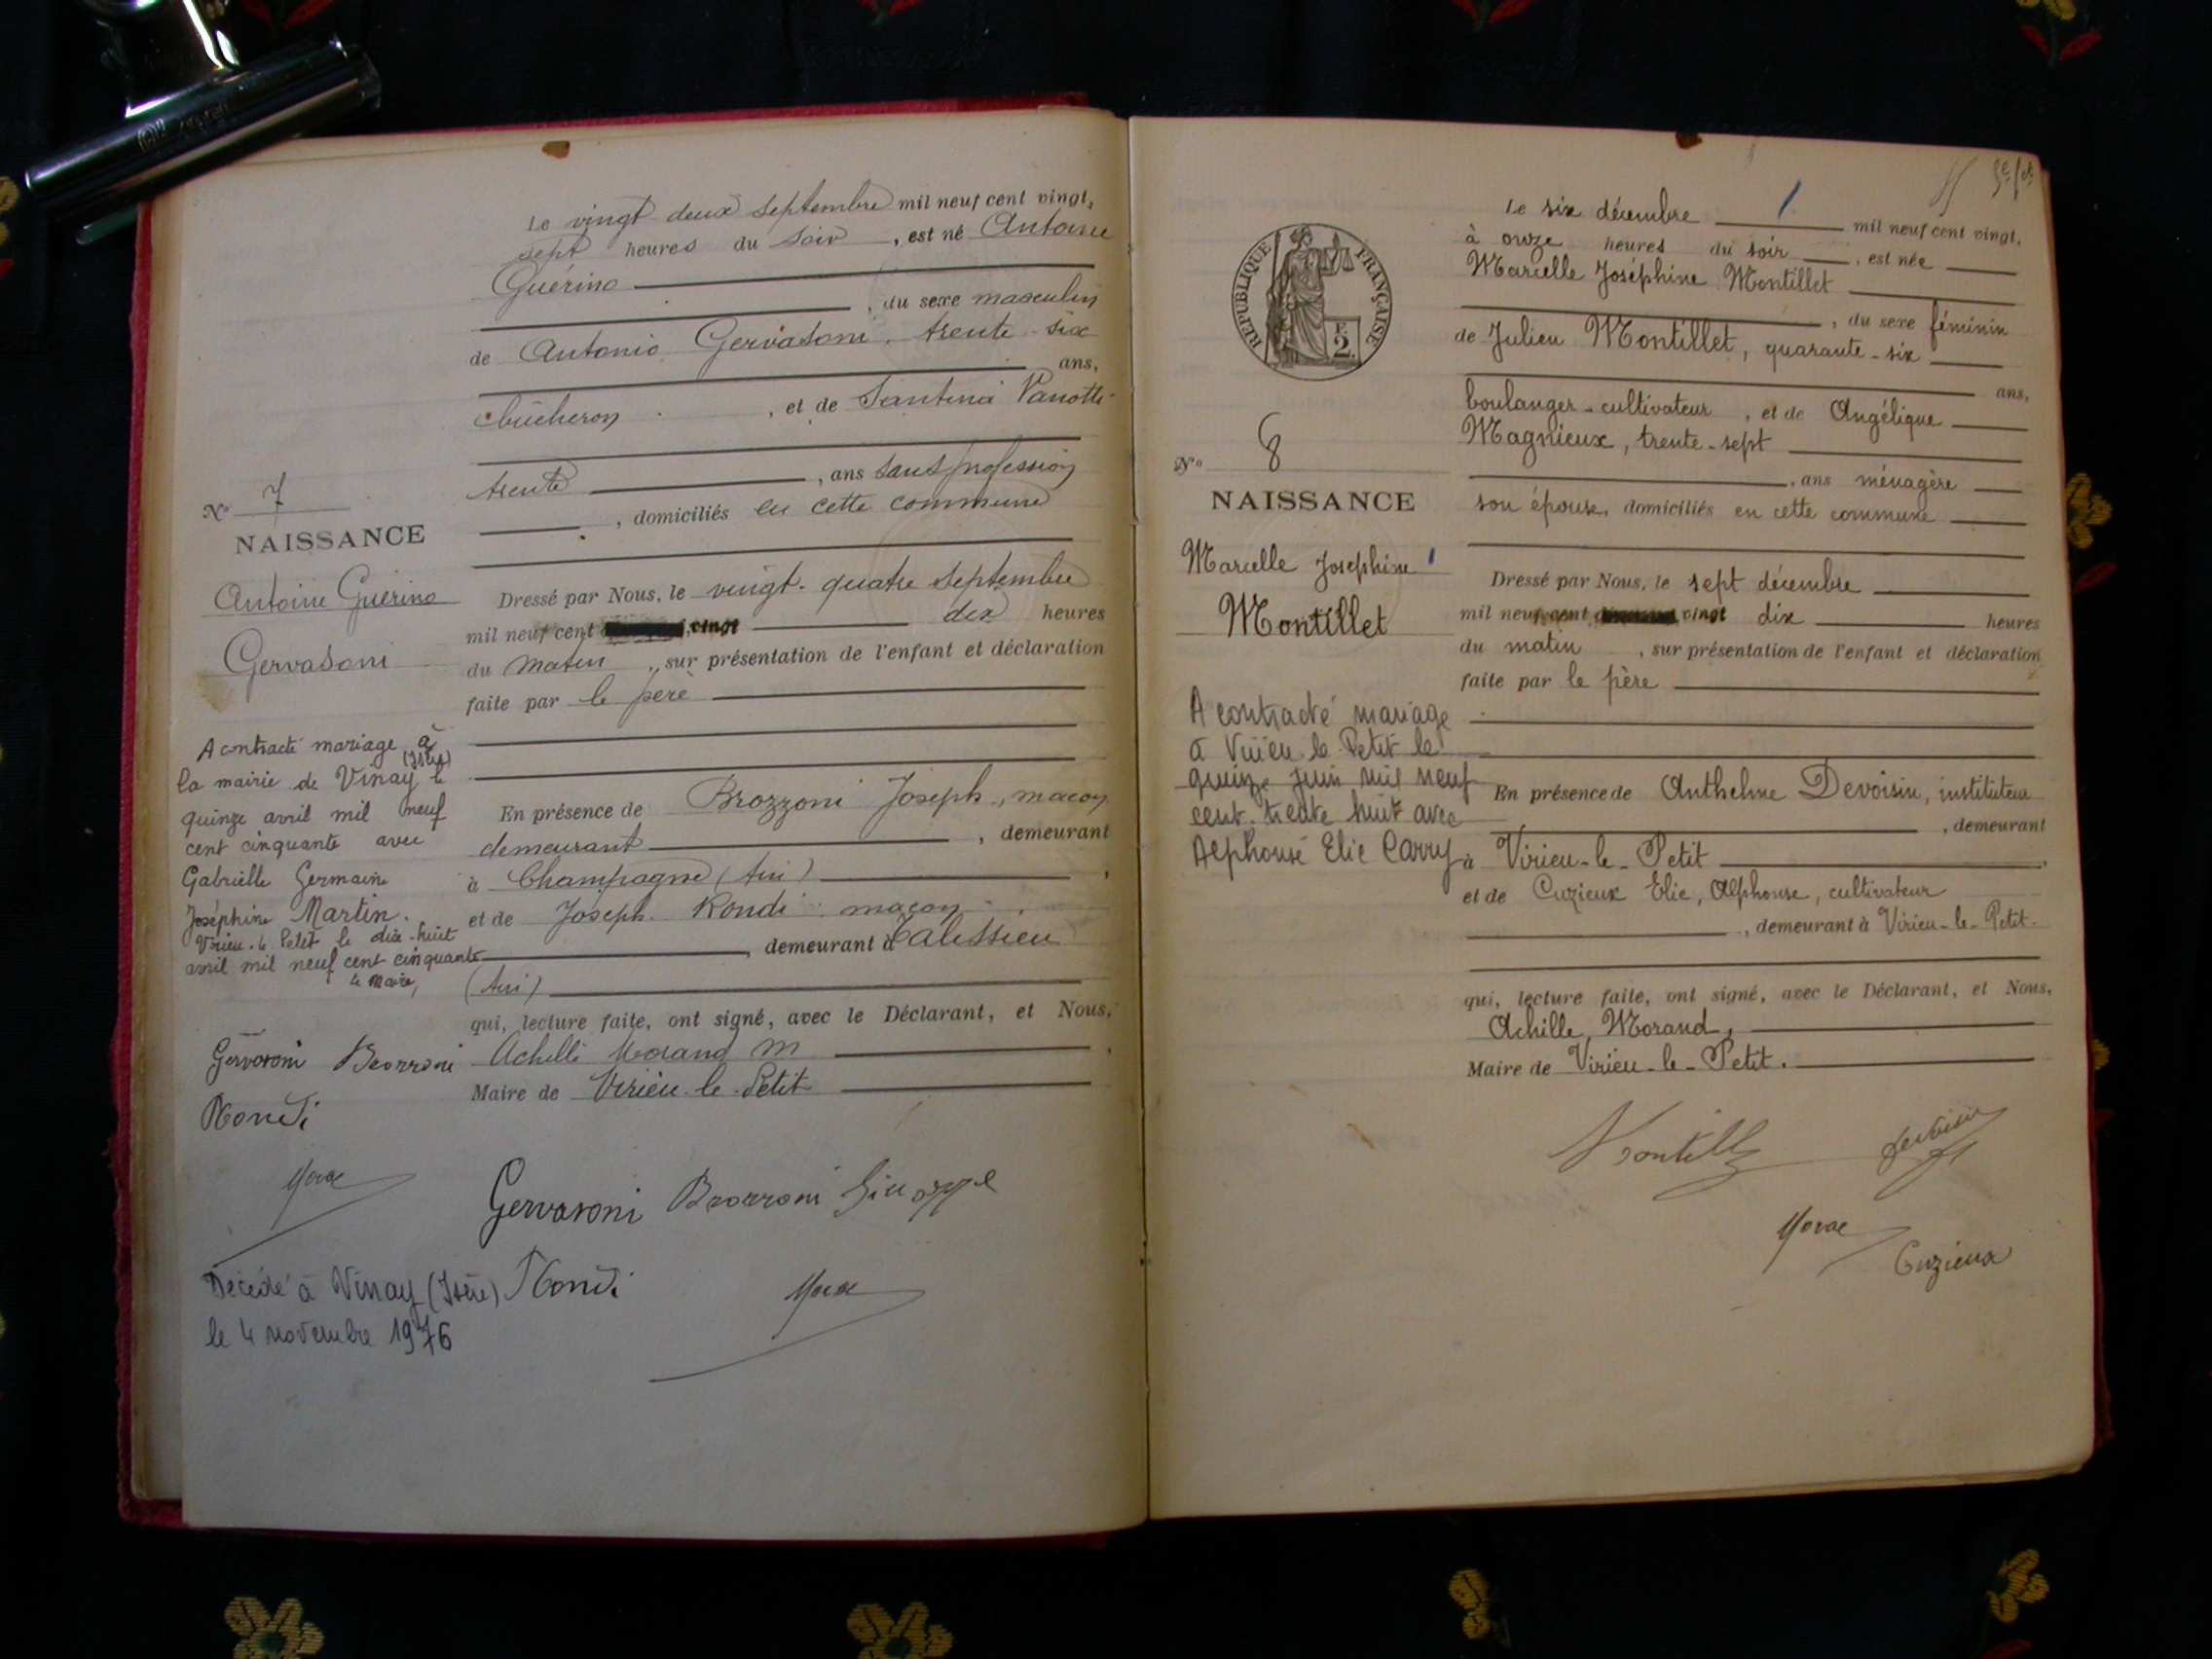 Le vingt deux septembre mil neuf cent vingt,
sept heures du soir, est né Antoine
Guérino
, du sexe masculin
de Antonio Gervasoni, trente-six
ans,
bûcheron, et de Santina
trente, ans sans profession
, domiciliés en cette commune
Dressé par Nous, le vingt-quatre septembre
mil neuf cent vingt dix heures
du matin, sur présentation de l'enfant et déclaration
faite par le père
En présence de Brozzoni Joseph, maçon
demeurant, demeurant
à Champagne (Ain),
et de Joseph Rondi maçon
, demeurant à Talissieu
(Ain)
qui, lecture faite, ont signé, avec le Déclarant, et Nous,
Achille Morand,
Maire de Virieu-le-Petit
Gervasoni Brozzoni Giuseppe
Rondi
No 7
NAISSANCE
Antoine Guérino
Gervasoni
A contracté mariage à
la mairie de Vinay (Isère) le
quinze avril mil neuf
cent cinquante avec
Gabrielle Germaine
Joséphine Martin.
Virieu-le-Petit le dix-huit
avril mil neuf cent cinquante
Le Maire,
Gervasoni Brozzoni
Rondi
Décédé à Vinay (Isère)
le 4 novembre 1976
REPUBLIQUE FRANÇAISE
2
No 8
NAISSANCE
Marcelle Josephine
Montillet
A contracté mariage
à Virieu le Petit le
quinze juin mil neuf
cent trente huit avec
Alphonse Elie Carry
Le six décembre mil neuf cent vingt,
à onze heures du soir, est née
Marcelle Joséphine Montillet
, du sexe féminin
de Julien Montillet, quarante-six
ans,
boulanger-cultivateur, et de Angélique
Magnieux, trente-sept
, ans ménagère
son épouse, domiciliés en cette commune
Dressé par Nous, le sept décembre
mil neuf cent vingt dix heures
du matin, sur présentation de l'enfant et déclaration
faite par le père
En présence de Anthelme Devoisin, instituteur
, demeurant
à Virieu-le-Petit,
et de Cuzieux Elie, Alphonse, cultivateur
, demeurant à Virieu-le-Petit.
qui, lecture faite, ont signé, avec le Déclarant, et Nous,
Achille Morand,
Maire de Virieu-le-Petit.
Devoisin
Cuzieux